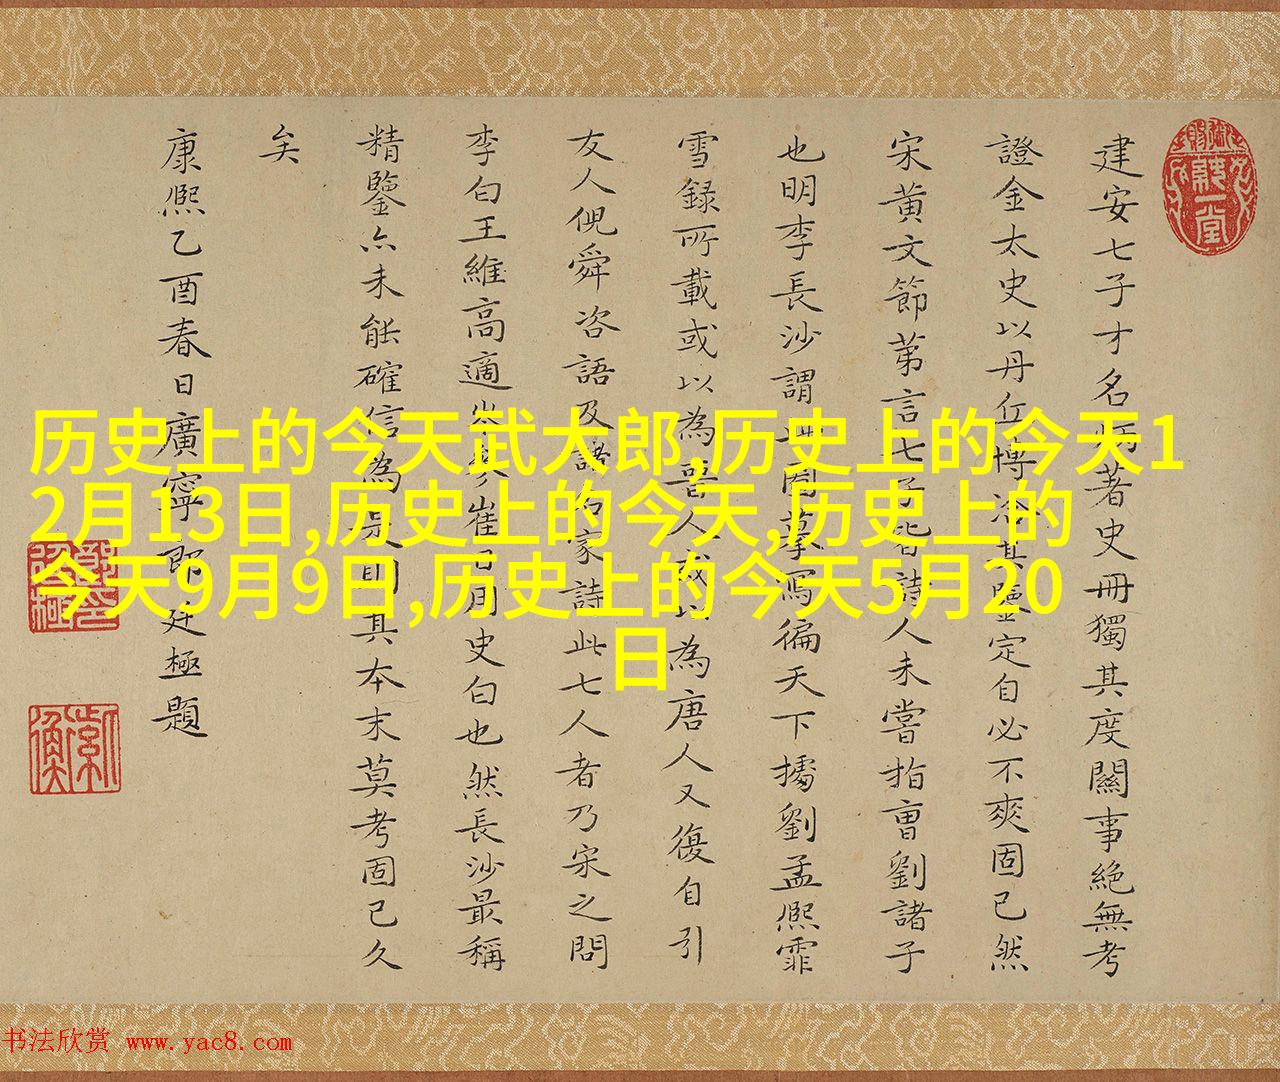 建安七子才名炳著史冊獨其度關事絕無考
證金太史以丹丘博洽其鑒定自必不爽固已然
宋黃文節第言七子皆詩人未嘗指曹劉諸子
也明李長沙謂此圖摹寫徧天下據劉孟熙霏
雪録所載或以為晉人或以為唐人又復自引
友人倪舜咨語及諸名家詩此七人者乃宋之問
李白王維高適岑參崔日用史白也然長沙最稱
精鑒亦未能確信為是則其本末莫考固已久
矣
康熙乙酉春日廣寧郎廷極題
历史上的今天武大郎,历史上的今天1
2月13日,历史上的今天,历史上的
今天9月9日,历史上的今天5月20
日
书法欣赏 www.yac8.com